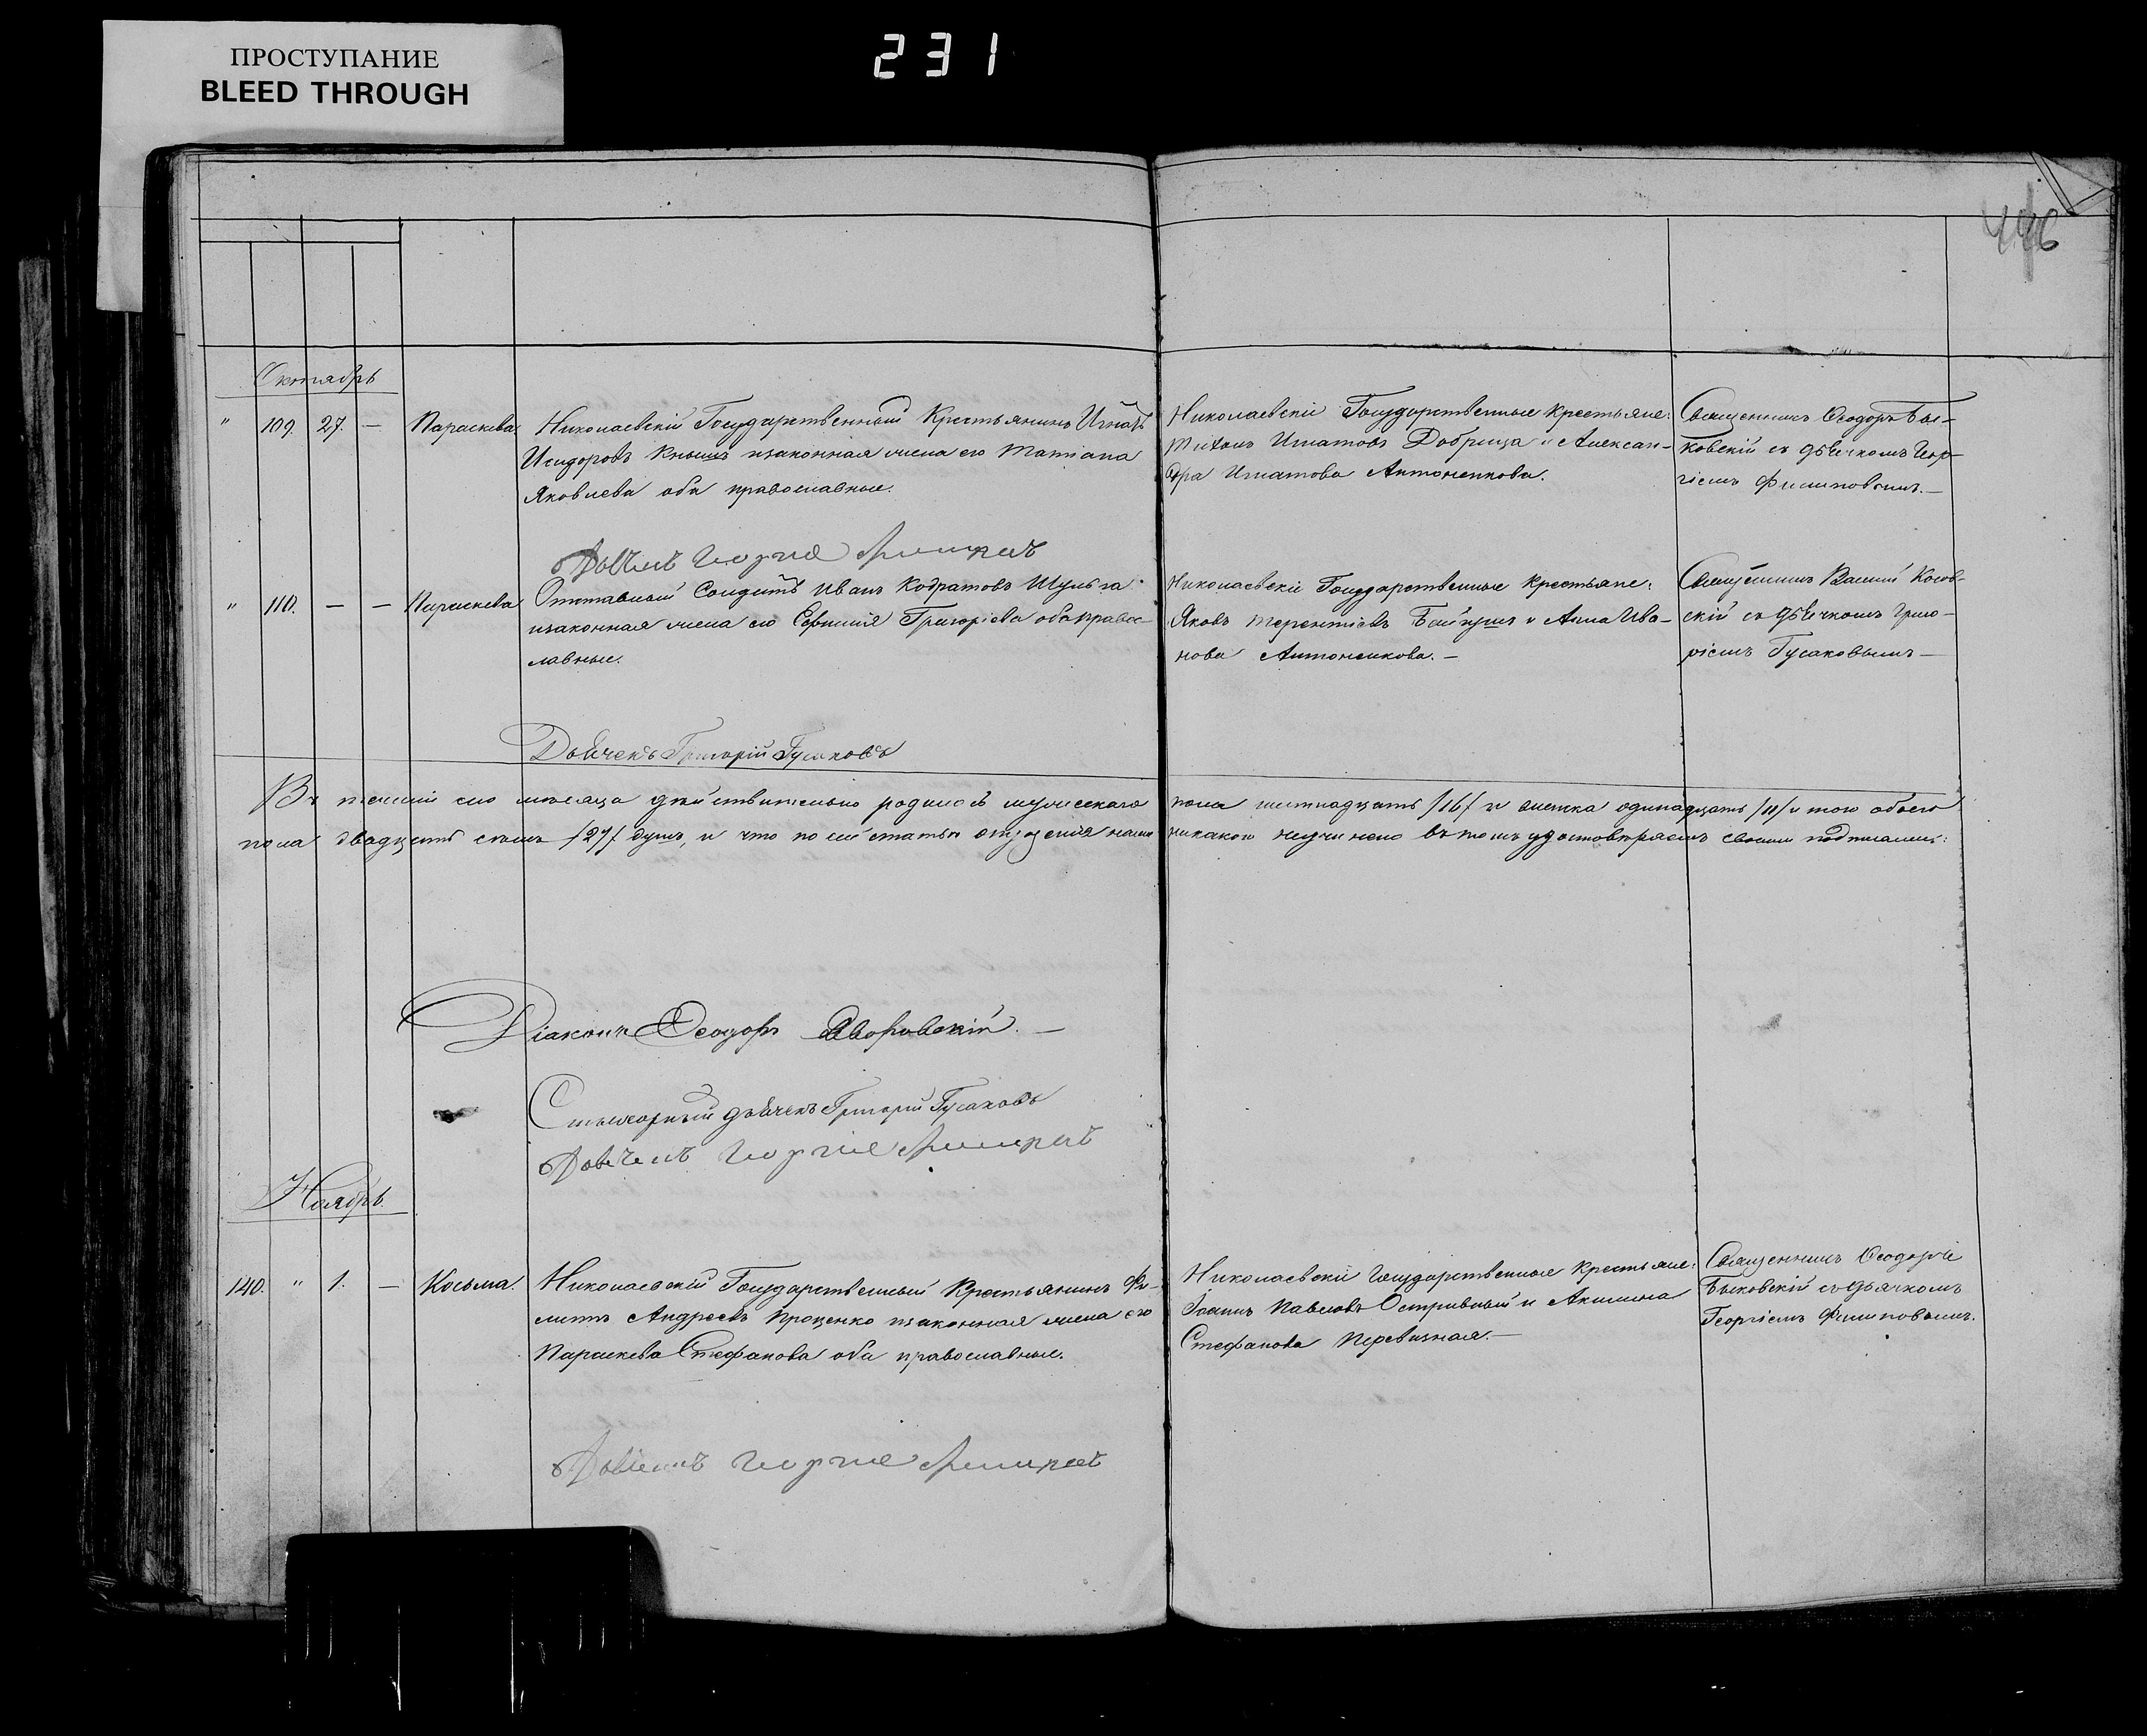 ПРОСТУПАНИЕ
BLEED THROUGH
231
446
Октябрь
" 109. 27. — Параскева.
Николаевскій Государственный Крестьянинъ Игнатъ
Исидоровъ Кнышъ изаконная жена его Татіана
Яковлева оба православные.
Николаевскіе Государственные крестьяне:
Тихонъ Игнатовъ Добрица и Алексан-
дра Игнатова Антоненкова.
Священникъ Ѳеодоръ Бы-
ковскій съ дьячкомъ Геор-
гіемъ Филиповымъ.—
Дьячекъ Георгій
" 110. — — Параскева
Отставный Солдатъ Иванъ Кодратовъ Шульга
изаконная жена его Евфимія Григоріева оба правос-
лавные.
Николаевскіе Государственные крестьяне:
Яковъ Терентіевъ и Анна Ива-
нова Антоненкова.—
Священникъ Василій Косов-
скій съ дьячкомъ Григо-
ріемъ Гусаковымъ—
Дьячекъ Григорій Гусаковъ
Въ теченіи сего месяца действительно родилось мужескаго пола шестнадцать /16/ и женска одинадцать /11/ и того обоего
пола двадцать семь /27/ душъ, и что по сей статьи никакого неучинено въ томъ удостовѣряемъ своими подписами:
Діаконъ Ѳеодоръ Яворовскій.—
дьячекъ Григорій Гусаковъ
Дьячекъ Георгій
Ноябрь.
140. " 1. — Косьма.
Николаевскій Государственный Крестьянинъ Фи-
липъ Андреевъ Проценко изаконная жена его
Параскева Стефанова оба православные.
Николаевскіе Государственные крестьяне:
Іоаннъ Павловъ Остривный и Акилина
Стефанова Перевизная.—
Священникъ Ѳеодоръ
Быковскій съ дьячкомъ
Георгіемъ Филиповымъ.
Дьячекъ Георгій